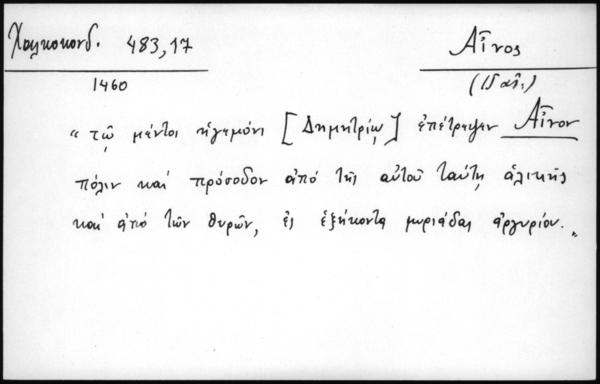 Χαλκοκονδ. 483,17
Αἶνος
1460
(ΙΕ αἰ.)
"τῷ μέντοι ἡγεμόνι [Δημητρίῳ] ἐπέτρεψεν Αἶνον
πόλιν καὶ πρόσοδον ἀπὸ τῆς αὐτοῦ ταύτῃ ἁλικῆς
καὶ ἀπὸ τῶν θυρῶν, ἐς ἑξήκοντα μυριάδας ἀργυρίου."